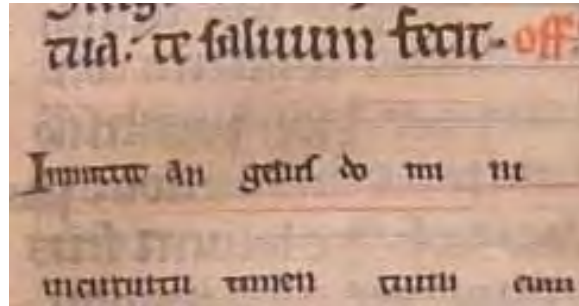 tua. te saluum fecit. off.
Inmittit an gelus do mi ni
in circuitu timen tium eum